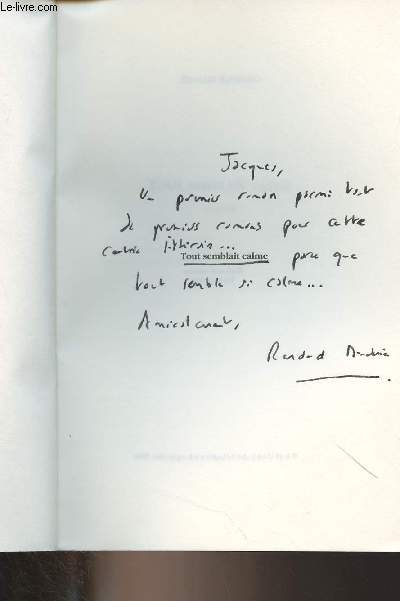 Le-livre.com
Jacques,
Un premier roman parmi tant
de premiers romans pour cette
rentrée littéraire...
Tout semblait calme pour que
tout semble si calme...
Amicalement,